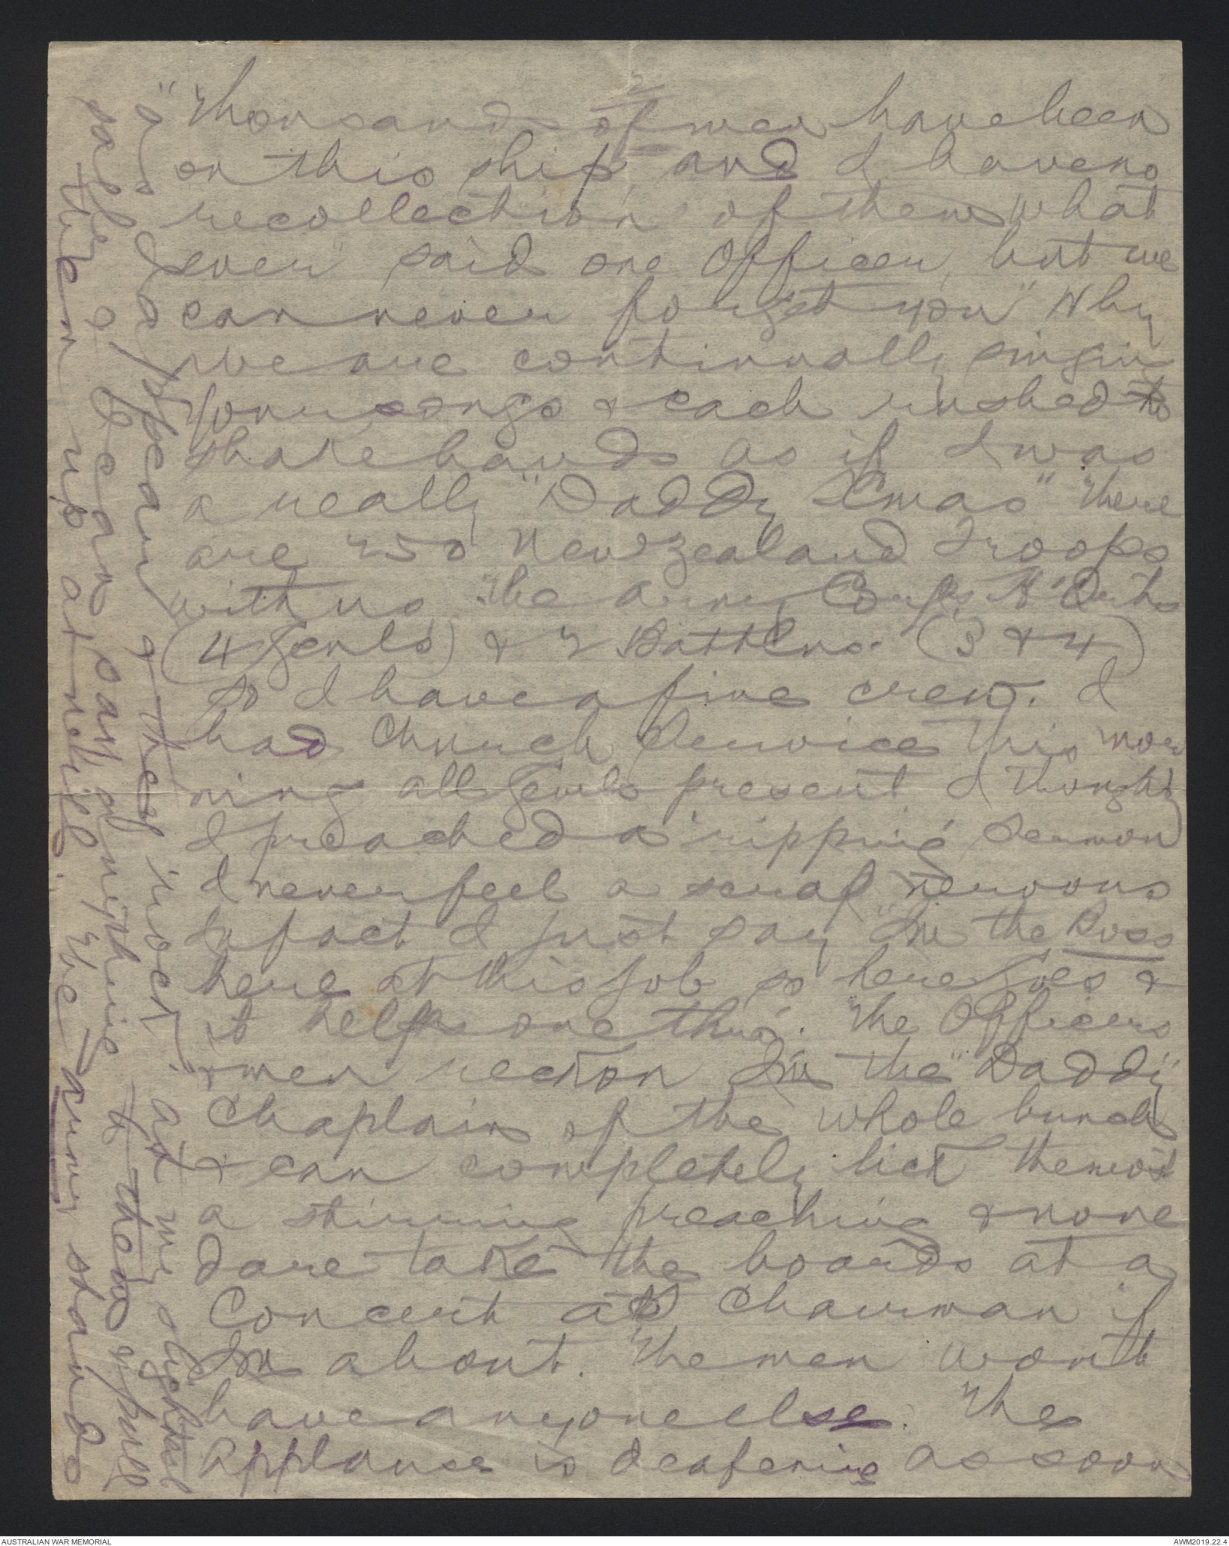 2
"Thousands of men have been
on this ship and I have no
recollection of them what
ever" said one Officer, but we
can never forget you" Why
we are continually singing
your songs & each rushed to
shake hands as if I was
a really "Daddy Xmas" There
are 250 New Zealand Troops
with us. The army Corps H'Qrts
(4 Genls) & 2 Battlns. (3 & 4)
so I have a fine crew. I
had Church Service this mor
ning all Genls present I thought
I preached a 'ripping' Sermon
I never feel a scrap nervous
In fact I just say "I'm the Boss
here at this job so here goes &
it helps one thro'. The Officers
& men reckon I'm the "Daddy"
Chaplain of the whole bunch
& can completely lick them at
a stirring preaching & none
dare take the boards at a
Concert as Chairman if
I'm about. The men wont
have anyone else. The
applause is deafening as soon
as I appear & they 'rock' at my slightest
sally & I can say anything to them & pull
them up at will. The army stands
AUSTRALIAN WAR MEMORIAL
AWM2019.22.4